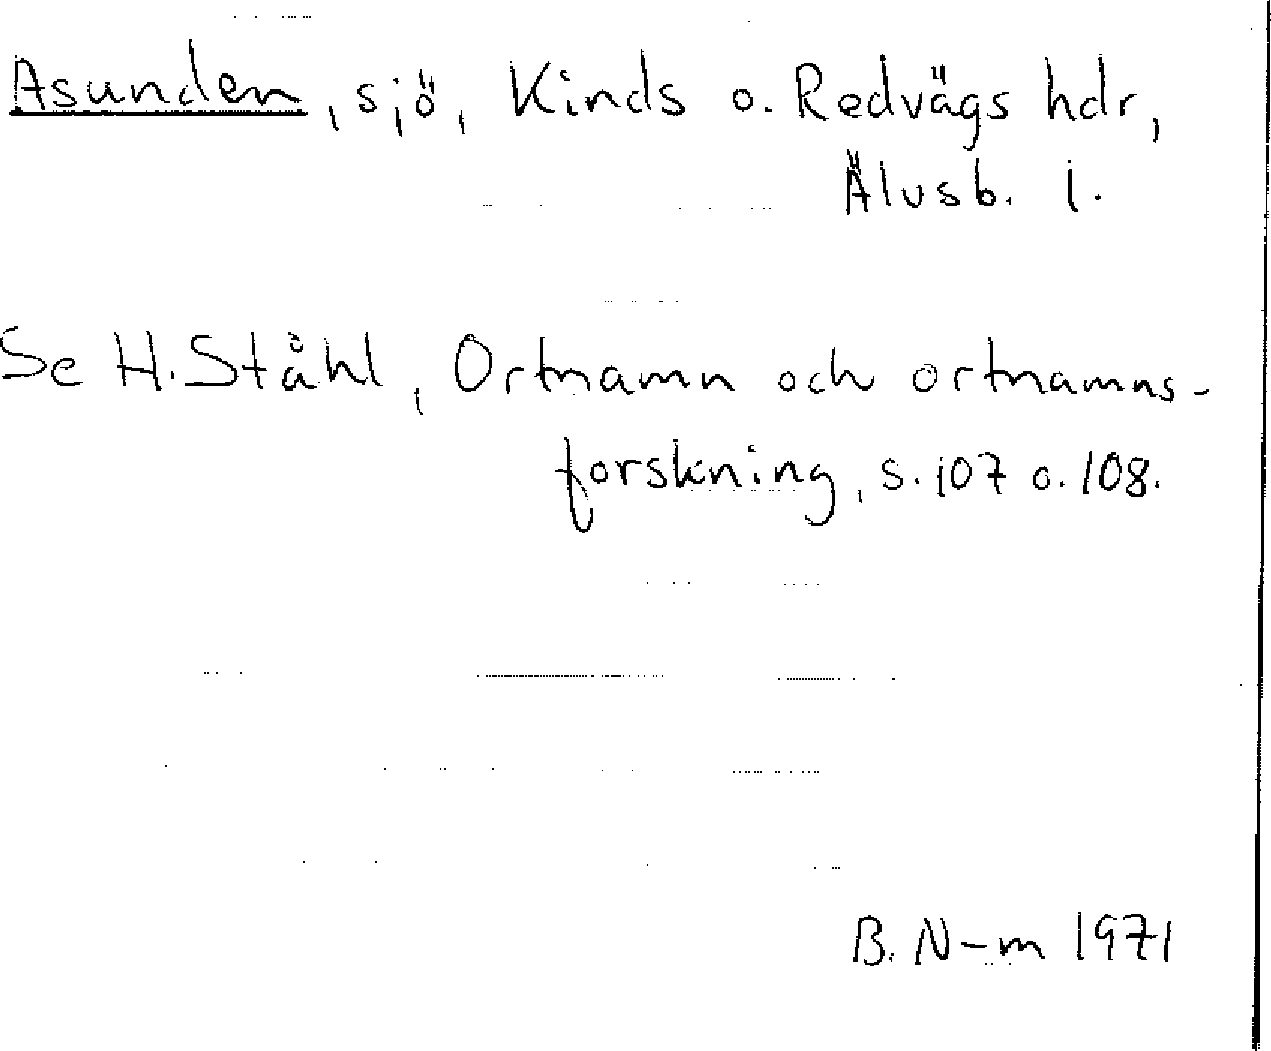 Asunden, sjö, Kinds o. Redvägs hdr,
Älvsb. l.
Se H. Ståhl, Ortnamn och ortnamns-
forskning, s. 107 o. 108.
B. N-m 1971